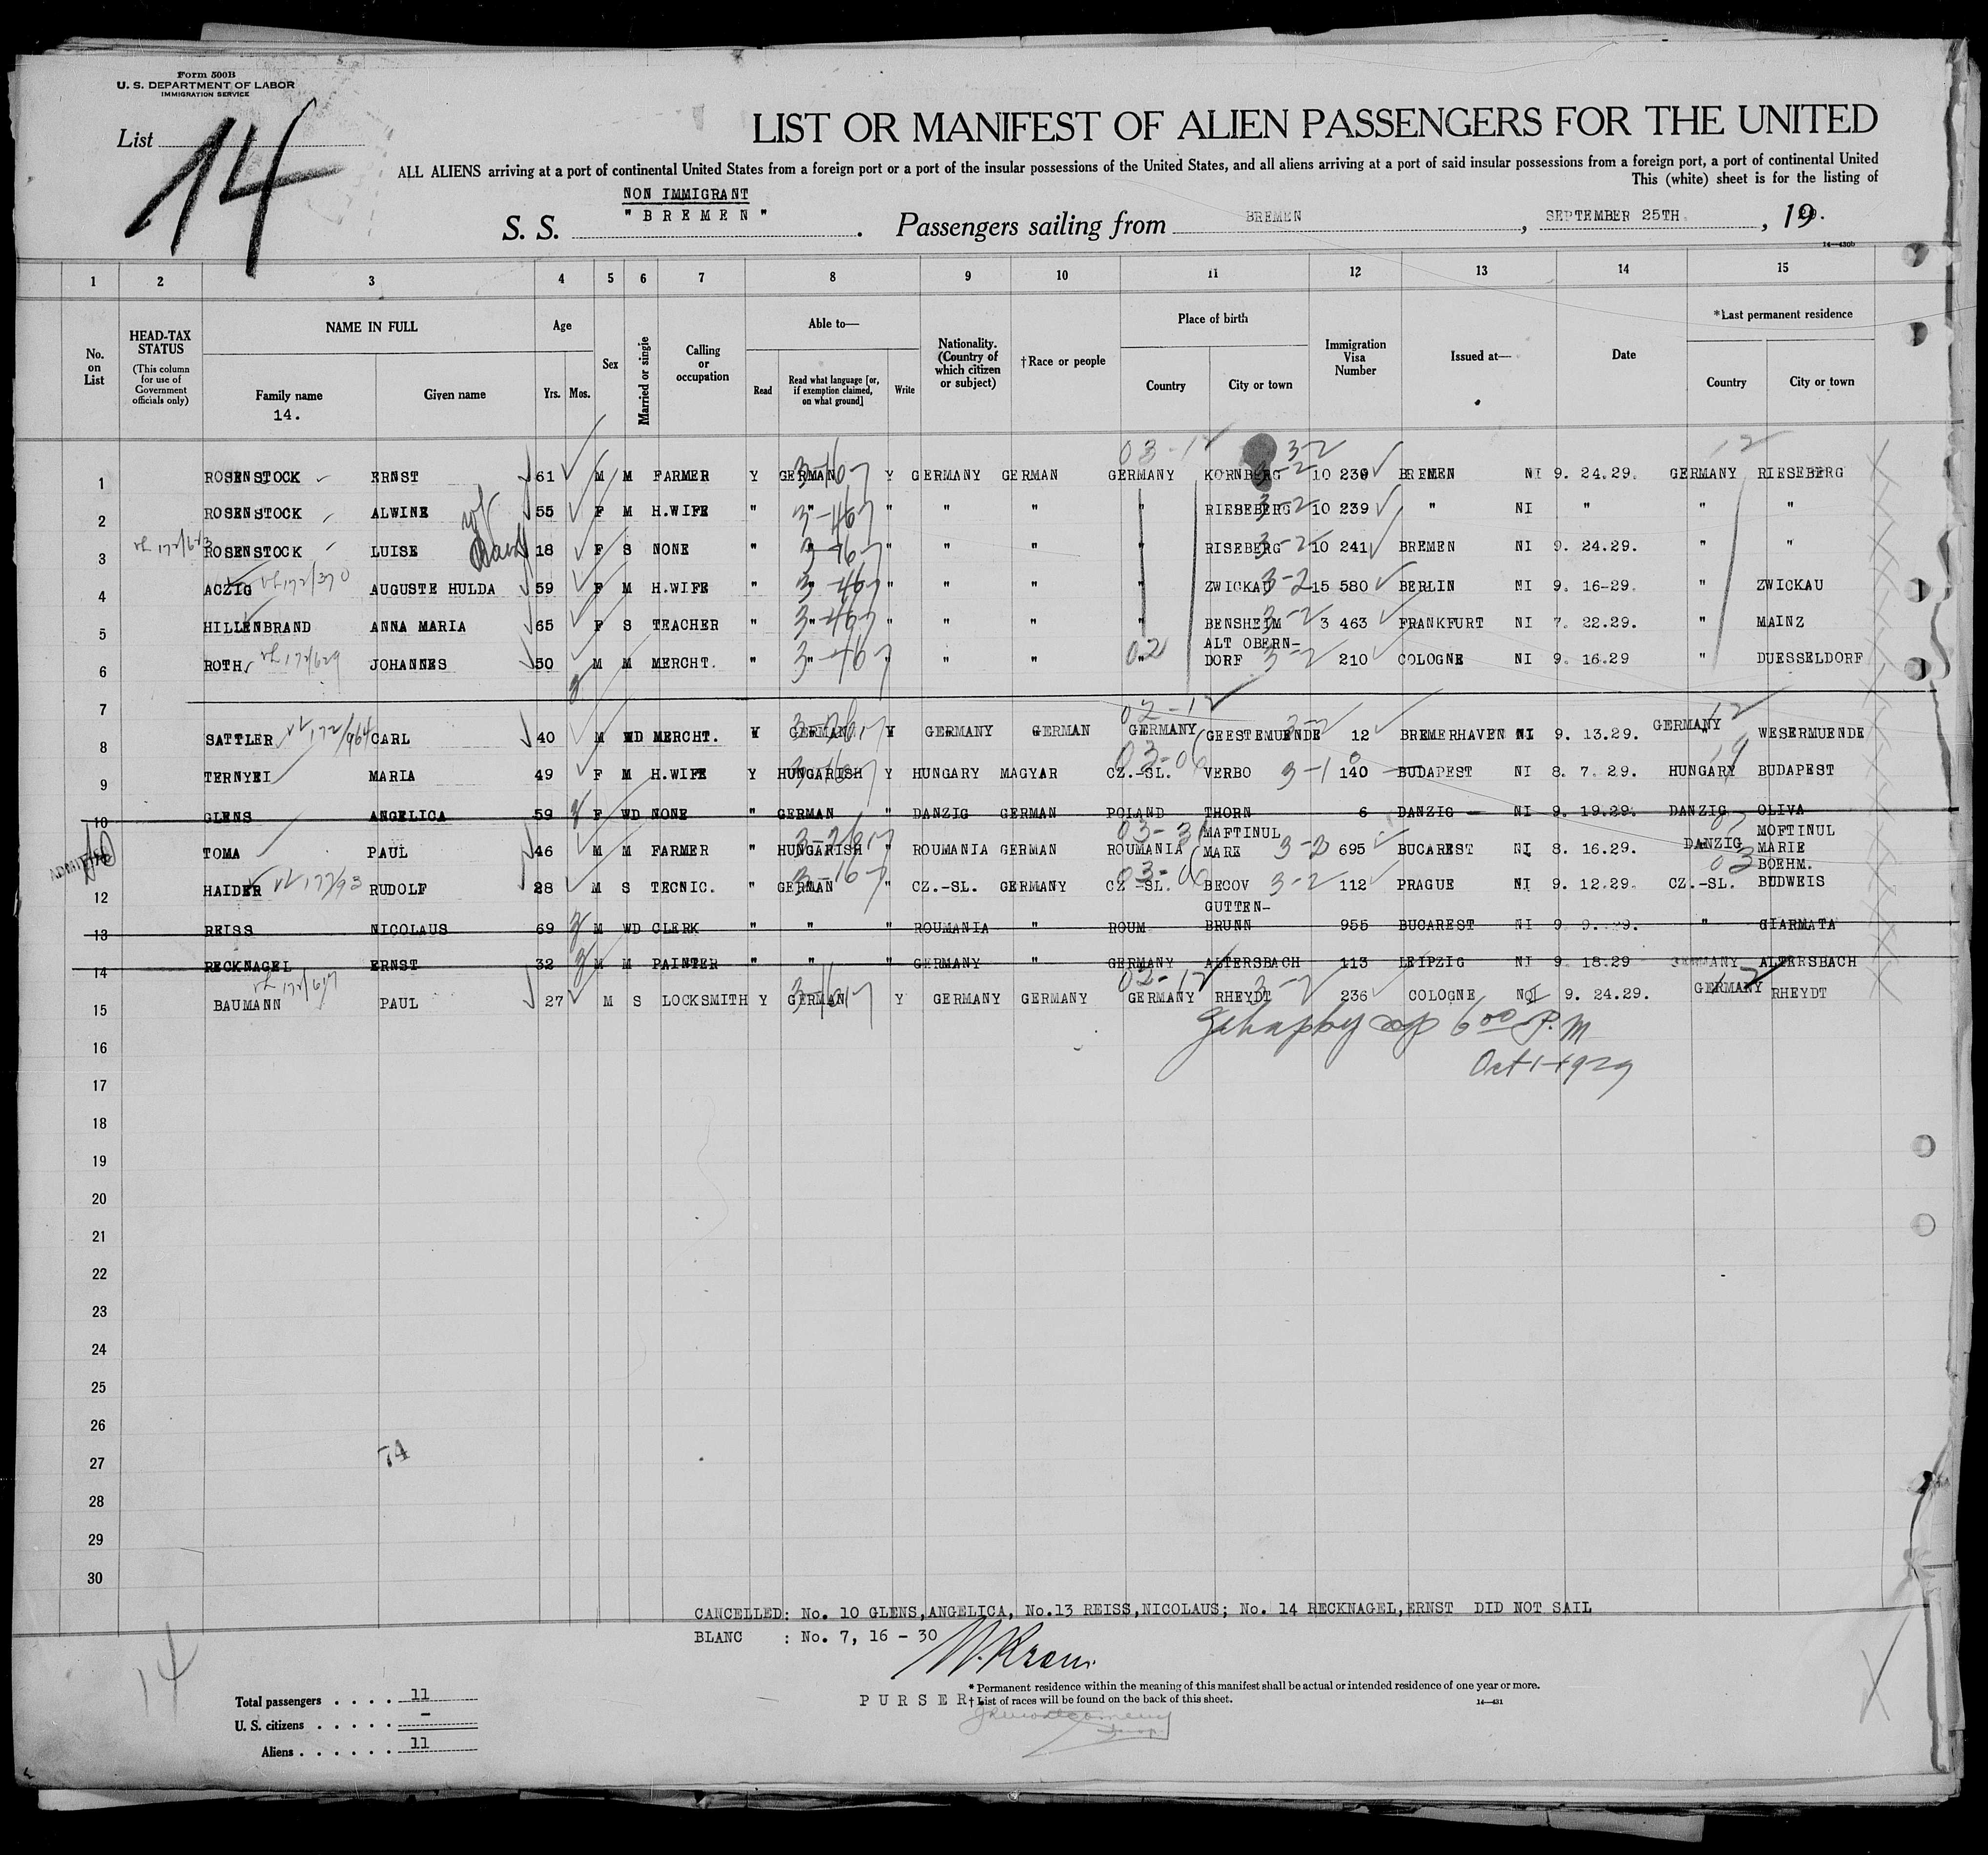 Form 500B
U. S. DEPARTMENT OF LABOR
IMMIGRATION SERVICE
List 14
LIST OR MANIFEST OF ALIEN PASSENGERS FOR THE UNITED
ALL ALIENS arriving at a port of continental United States from a foreign port or a port of the insular possessions of the United States, and all aliens arriving at a port of said insular possessions from a foreign port, a port of continental United
This (white) sheet is for the listing of
NON IMMIGRANT
S. S. "BREMEN". Passengers sailing from BREMEN, SEPTEMBER 25TH., 1929.
14—430b
1 2 3 4 5 6 7 8 9 10 11 12 13 14 15
No. on List
HEAD-TAX STATUS
(This column for use of Government officials only)
NAME IN FULL
Family name
14.
Given name
Age
Yrs. Mos.
Sex
Married or single
Calling or occupation
Able to—
Read
Read what language [or, if exemption claimed, on what ground]
Write
Nationality. (Country of which citizen or subject)
†Race or people
Place of birth
Country
City or town
Immigration Visa Number
Issued at—
Date
*Last permanent residence
Country
City or town
1 ROSENSTOCK ERNST 61 M M FARMER Y GERMAN Y GERMANY GERMAN GERMANY KORNBERG 10 239 BREMEN NI 9. 24.29. GERMANY RIESEBERG
2 ROSENSTOCK ALWINE 55 F M H.WIFE " " " " " " RIESEBERG 10 239 " NI " " "
3 ROSENSTOCK LUISE 18 F S NONE " " " " " " RISEBERG 10 241 BREMEN NI 9. 24.29. " "
4 ACZIG AUGUSTE HULDA 59 F M H.WIFE " " " " " " ZWICKAU 15 580 BERLIN NI 9. 16-29. " ZWICKAU
5 HILLENBRAND ANNA MARIA 65 F S TEACHER " " " " " " BENSHEIM 3 463 FRANKFURT NI 7. 22.29. " MAINZ
6 ROTH JOHANNES 50 M M MERCHT. " " " " " " ALT OBERN-DORF 210 COLOGNE NI 9. 16.29 " DUESSELDORF
7
8 SATTLER CARL 40 M WD MERCHT. Y GERMAN Y GERMANY GERMAN GERMANY GEESTEMUENDE 12 BREMERHAVEN NI 9. 13.29. GERMANY WESERMUENDE
9 TERNYEI MARIA 49 F M H.WIFE Y HUNGARISH Y HUNGARY MAGYAR CZ.-SL. VERBO 140 BUDAPEST NI 8. 7. 29. HUNGARY BUDAPEST
10 GLENS ANGELICA 59 F WD NONE " GERMAN " DANZIG GERMAN POLAND THORN 6 DANZIG NI 9. 19.29. DANZIG OLIVA
TOMA PAUL 46 M M FARMER " HUNGARISH " ROUMANIA GERMAN ROUMANIA MAFTINUL MARE 695 BUCAREST NI 8. 16.29. DANZIG MOFTINUL MARIE
12 HAIDER RUDOLF 28 M S TECNIC. " GERMAN " CZ.-SL. GERMANY CZ.-SL. BECOV 112 PRAGUE NI 9. 12.29. CZ.-SL. BOEHM. BUDWEIS
13 REISS NICOLAUS 69 M WD CLERK " " " ROUMANIA " ROUM GUTTEN-BRUNN 955 BUCAREST NI 9. 9. 29. " GIARMATA
14 RECKNAGEL ERNST 32 M M PAINTER " " " GERMANY " GERMANY ALTERSBACH 113 LEIPZIG NI 9. 18.29 GERMANY ALTERSBACH
15 BAUMANN PAUL 27 M S LOCKSMITH Y GERMAN Y GERMANY GERMANY GERMANY RHEYDT 236 COLOGNE NI 9. 24.29. GERMANY RHEYDT
6 00 P.M
16
Oct 1-1929
17
18
19
20
21
22
23
24
25
26
74
27
28
29
30
CANCELLED: No. 10 GLENS,ANGELICA, No.13 REISS,NICOLAUS; No. 14 RECKNAGEL,ERNST DID NOT SAIL
BLANC : No. 7, 16 - 30
14
PURSER.
* Permanent residence within the meaning of this manifest shall be actual or intended residence of one year or more.
† List of races will be found on the back of this sheet.
14—431
Total passengers . . . . 11
U. S. citizens . . . . . -
Aliens . . . . . . 11